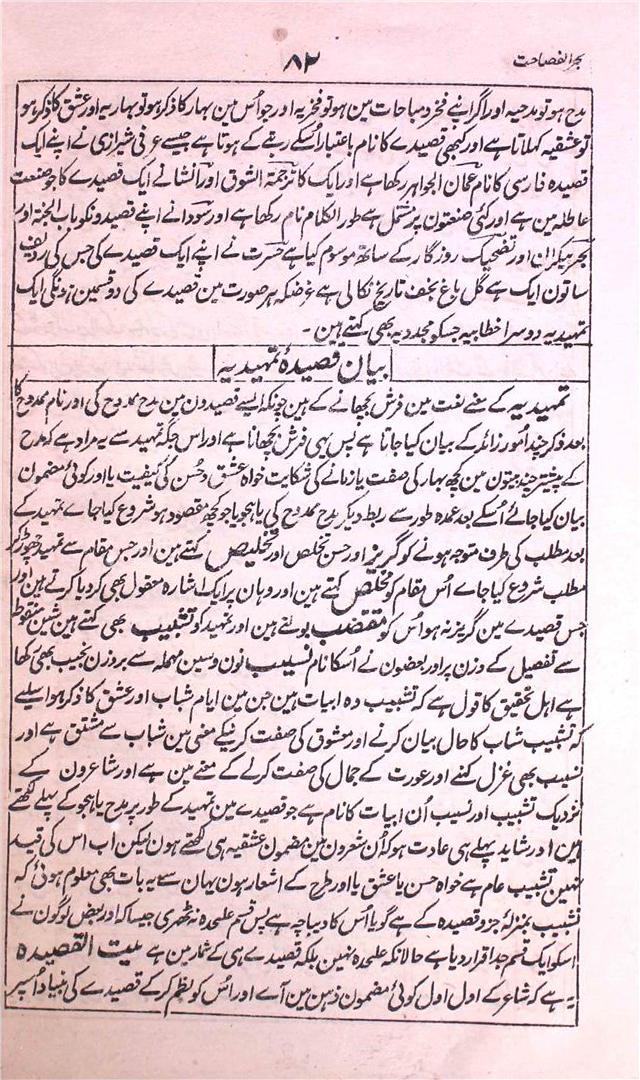 بحر الفصاحت
۸۲
مدح ہو تو مدحیہ اور اگر اپنے فخر و مباہات مین ہو تو فخریہ اور جو اُس مین بہار کا ذکر ہو تو بہاریہ اور عشق کا ذکر ہو
تو عشقیہ کہلاتا ہے اور کبھی قصیدے کا نام باعتبار اُسکے رتبے کے ہوتا ہے جیسے عرفی شیرازی نے اپنے ایک
قصیدہ فارسی کا نام عمان الجواہر رکھا ہے اور ایک کا ترجمۃ الشوق اور انشا نے ایک قصیدے کا جو صنعت
عاطلہ مین ہے اور کئی صنعتون پر مشتمل ہے طور الکلام نام رکھا ہے اور سودا نے اپنے قصیدونکو باب الجنۃ اور
بحر بیکران اور تضحیک روزگار کے ساتھ موسوم کیا ہے حسرت نے اپنے ایک قصیدے کی جس کی ردیف
ساتون ایک ہے گل باغ نجف تاریخ نکالی ہے غرضکہ ہر صورت مین قصیدے کی دو قسمین ہونگی ایک
تمہیدیہ دوسرا خطابیہ جسکو مجددیہ بھی کہتے ہین ۔
بیان قصیدۂ تمہیدیہ
تمہیدیہ کے معنے لغت مین فرش بچھانے کے ہین چونکہ ایسے قصیدون مین مدح ممدوح کی اور نام ممدوح کا
بعد ذکر چند اُمور زائد کے بیان کیا جاتا ہے پس یہی فرش بچھانا ہے اور اس جگہ تمہید سے یہ مراد ہے کہ مدح
کے پیشتر چند بیتون مین کچھ بہار کی صفت یا زمانے کی شکایت خواہ عشق و حُسن کی کیفیت یا اور کوئی مضمون
بیان کیا جائے اُسکے بعد عمدہ طور سے ربط دیکر مدح ممدوح کی یا ہجو یا جو کچھ مقصود ہو شروع کیا جاے تمہید کے
بعد مطلب کی طرف متوجہ ہونے کو گریز اور حسن تخلص اور تخلیص کہتے ہین اور جس مقام سے تمہید چھوڑ کر
مطلب شروع کیا جاے اُس مقام کو مخلص کہتے ہین اور وہان پر ایک اشارہ معقول بھی کر دیا کرتے ہین اور
جس قصیدے مین گریز نہ ہو اُس کو مقتضب بولتے ہین اور تمہید کو تشبیب بھی کہتے ہین شین منقوط
سے تفصیل کے وزن پر اور بعضون نے اُسکا نام نسیب نون و سین مہملہ سے بروزن نجیب بھی رکھا
ہے اہل تحقیق کا قول ہے کہ تشبیب وہ ابیات ہین جن مین ایام شباب اور عشق کا ذکر ہو اسلیے
کہ تشبیب شباب کا حال بیان کرنے اور معشوق کی صفت کرنیکے معنی مین شباب سے مشتق ہے اور
نسیب بھی غزل کہنے اور عورت کے جمال کی صفت کرنے کے معنے مین ہے اور شاعرون کے
نزدیک تشبیب اور نسیب اُن ابیات کا نام ہے جو قصیدے مین تمہید کے طور پر مدح یا ہجو کے پہلے لکھتے
ہین اور شاید پہلے یہی عادت ہو کہ اُن شعرون مین مضمون عشقیہ ہی لکھتے ہون لیکن اب اس کی قید
نہین تشبیب عام ہے خواہ حسن یا عشق یا اور طرح کے اشعار ہون یہان سے یہ بات بھی معلوم ہوئی کہ
تشبیب بمنزلۂ جزو قصیدہ کے ہے گویا اُس کا دیباچہ ہے پس قسم علٰحدہ نہ ٹھہری جیسا کہ اور بعض لوگون نے
اسکو ایک قسم جدا قرار دیا ہے حالانکہ علٰحدہ نہین بلکہ قصیدے ہی کے شمار مین ہے بیت القصیدہ
یہ ہے کہ شاعر کے اول اول کوئی مضمون ذہن مین آے اور اُس کو نظم کر کے قصیدے کی بنیاد اُسپر